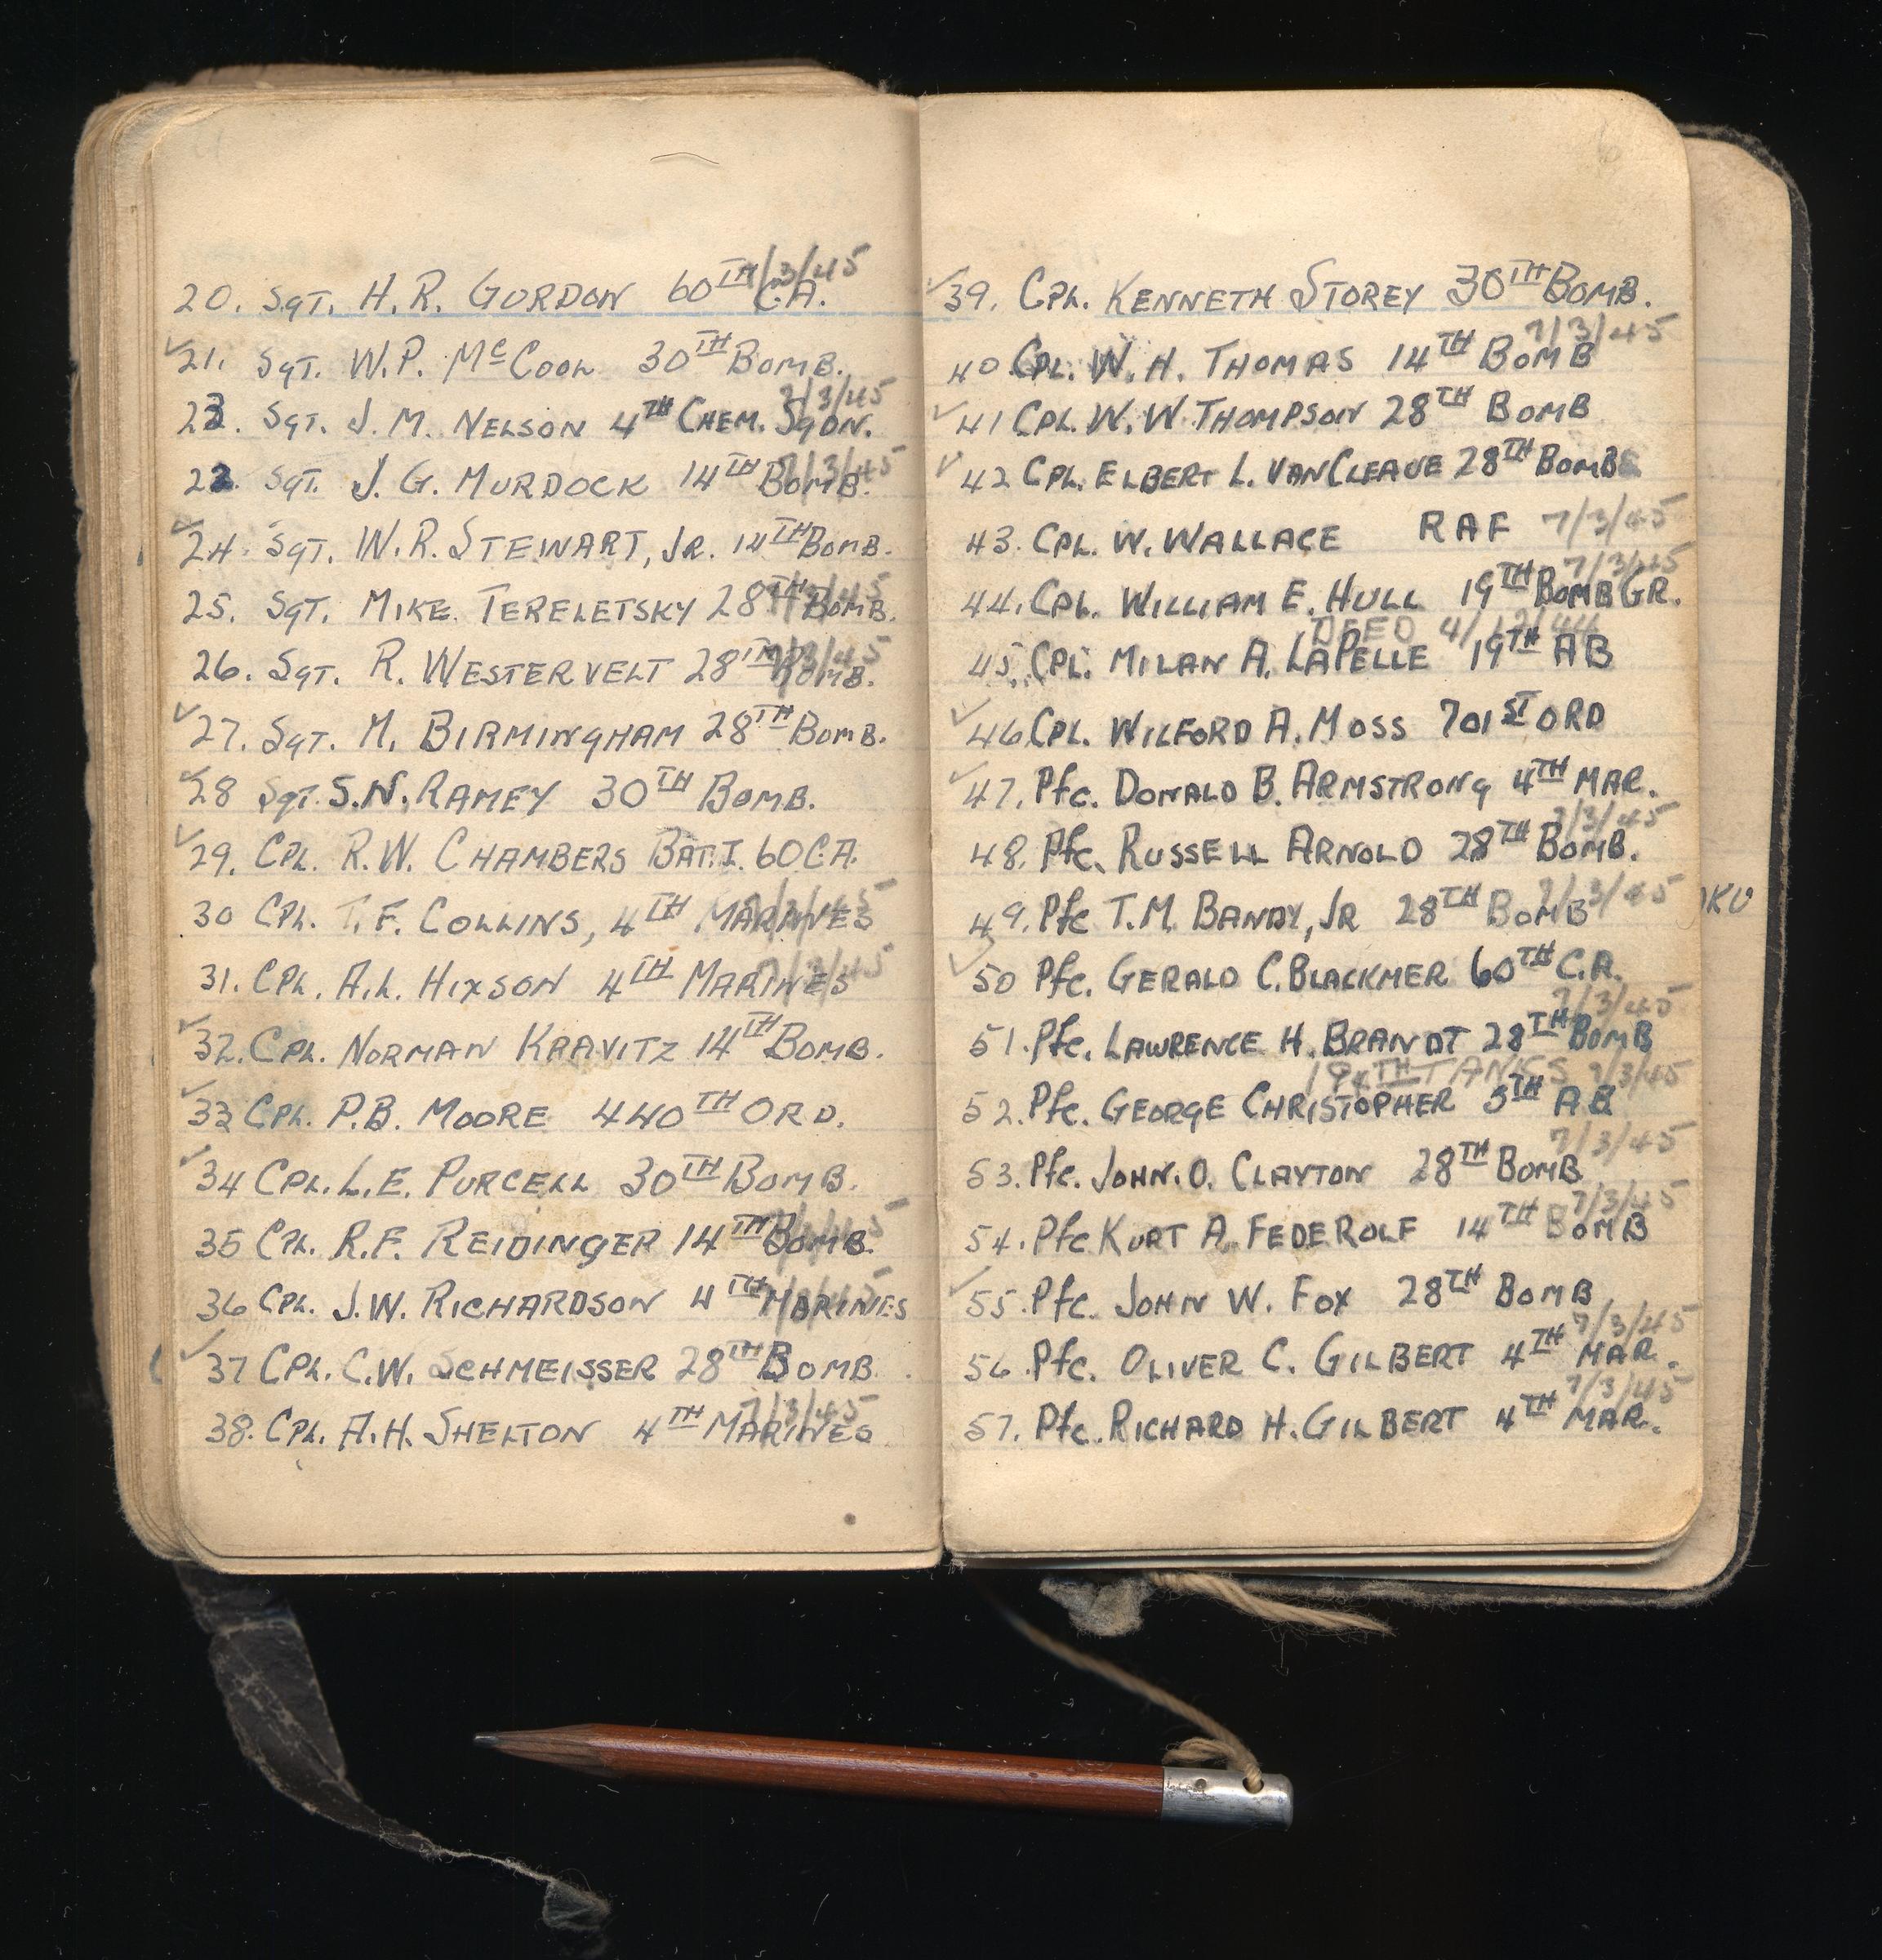 20. SGT. H. R. GORDON 60TH C.A. 7/3/45
✓21. SGT. W.P. McCOOL 30TH BOMB.
23. SGT. J. M. NELSON 4TH CHEM. SQDN. 7/3/45
22. SGT. J. G. MURDOCK 14TH BOMB. 7/3/45
✓24. SGT. W.R. STEWART, JR. 14TH BOMB.
25. SGT. MIKE TERELETSKY 28TH BOMB. 7/3/45
26. SGT. R. WESTERVELT 28TH BOMB. 7/3/45
✓27. SGT. M. BIRMINGHAM 28TH BOMB.
✓28 SGT. S.N. RAMEY 30TH BOMB.
✓29. CPL. R.W. CHAMBERS BAT. I. 60 C.A.
30 CPL. T. F. COLLINS, 4TH MARINES 7/3/45
31. CPL. A.L. HIXSON 4TH MARINES 7/3/45
✓32. CPL. NORMAN KRAVITZ 14TH BOMB.
✓33 CPL. P.B. MOORE 440TH ORD.
✓34 CPL. L.E. PURCELL 30TH BOMB.
35 CPL. R.F. REIDINGER 14TH BOMB. 7/3/45
36 CPL. J.W. RICHARDSON 4TH MARINES 7/3/45
✓37 CPL. C.W. SCHMEISSER 28TH BOMB.
38. CPL. A.H. SHELTON 4TH MARINES 7/3/45
✓39. CPL. KENNETH STOREY 30TH BOMB.
40 CPL. W. H. THOMAS 14TH BOMB 7/3/45
✓41 CPL. W. W THOMPSON 28TH BOMB
✓42 CPL. ELBERT L. VANCLEAVE 28TH BOMB
43. CPL. W. WALLACE RAF 7/3/45
44. CPL. WILLIAM E. HULL 19TH BOMB GR. 7/3/45
DIED 4/12/44
45. CPL. MILAN A. LAPELLE 19TH AB
✓46 CPL. WILFORD A. MOSS 701ST ORD
✓47. Pfc. DONALD B. ARMSTRONG 4TH MAR.
48. Pfc. RUSSELL ARNOLD 28TH BOMB. 7/3/45
49. Pfc T.M. BANDY, JR 28TH BOMB 7/3/45
✓50 Pfc. GERALD C. BLACKMER 60TH C.A.
51. Pfc. LAWRENCE H. BRANDT 28TH BOMB 7/3/45
194TH TANKS 7/3/45
52. Pfc. GEORGE CHRISTOPHER 5TH AB
53. Pfc. JOHN. O. CLAYTON 28TH BOMB 7/3/45
54. Pfc KURT A. FEDEROLF 14TH BOMB 7/3/45
✓55. Pfc. JOHN W. FOX 28TH BOMB
56. Pfc. OLIVER C. GILBERT 4TH MAR. 7/3/45
57. Pfc. RICHARD H. GILBERT 4TH MAR. 7/3/45